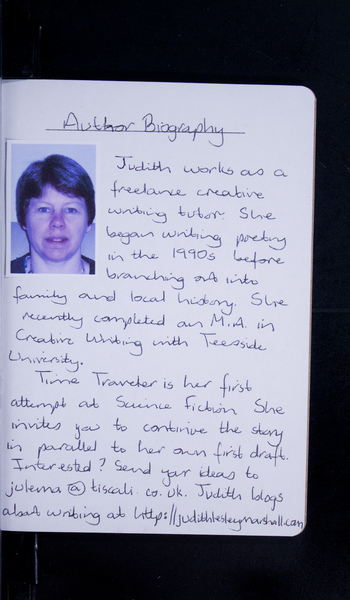 Author Biography
Judith works as a
freelance creative
writing tutor. She
began writing poetry
in the 1990s before
branching out into
family and local history. She
recently completed an M.A. in
Creative Writing with Teesside
University.
Time Traveler is her first
attempt at Science Fiction She
invites you to continue the story
in parallel to her own first draft.
Interested? Send your ideas to
julema@tiscali.co.uk. Judith blogs
about writing at http://judithlesleymarshall.com